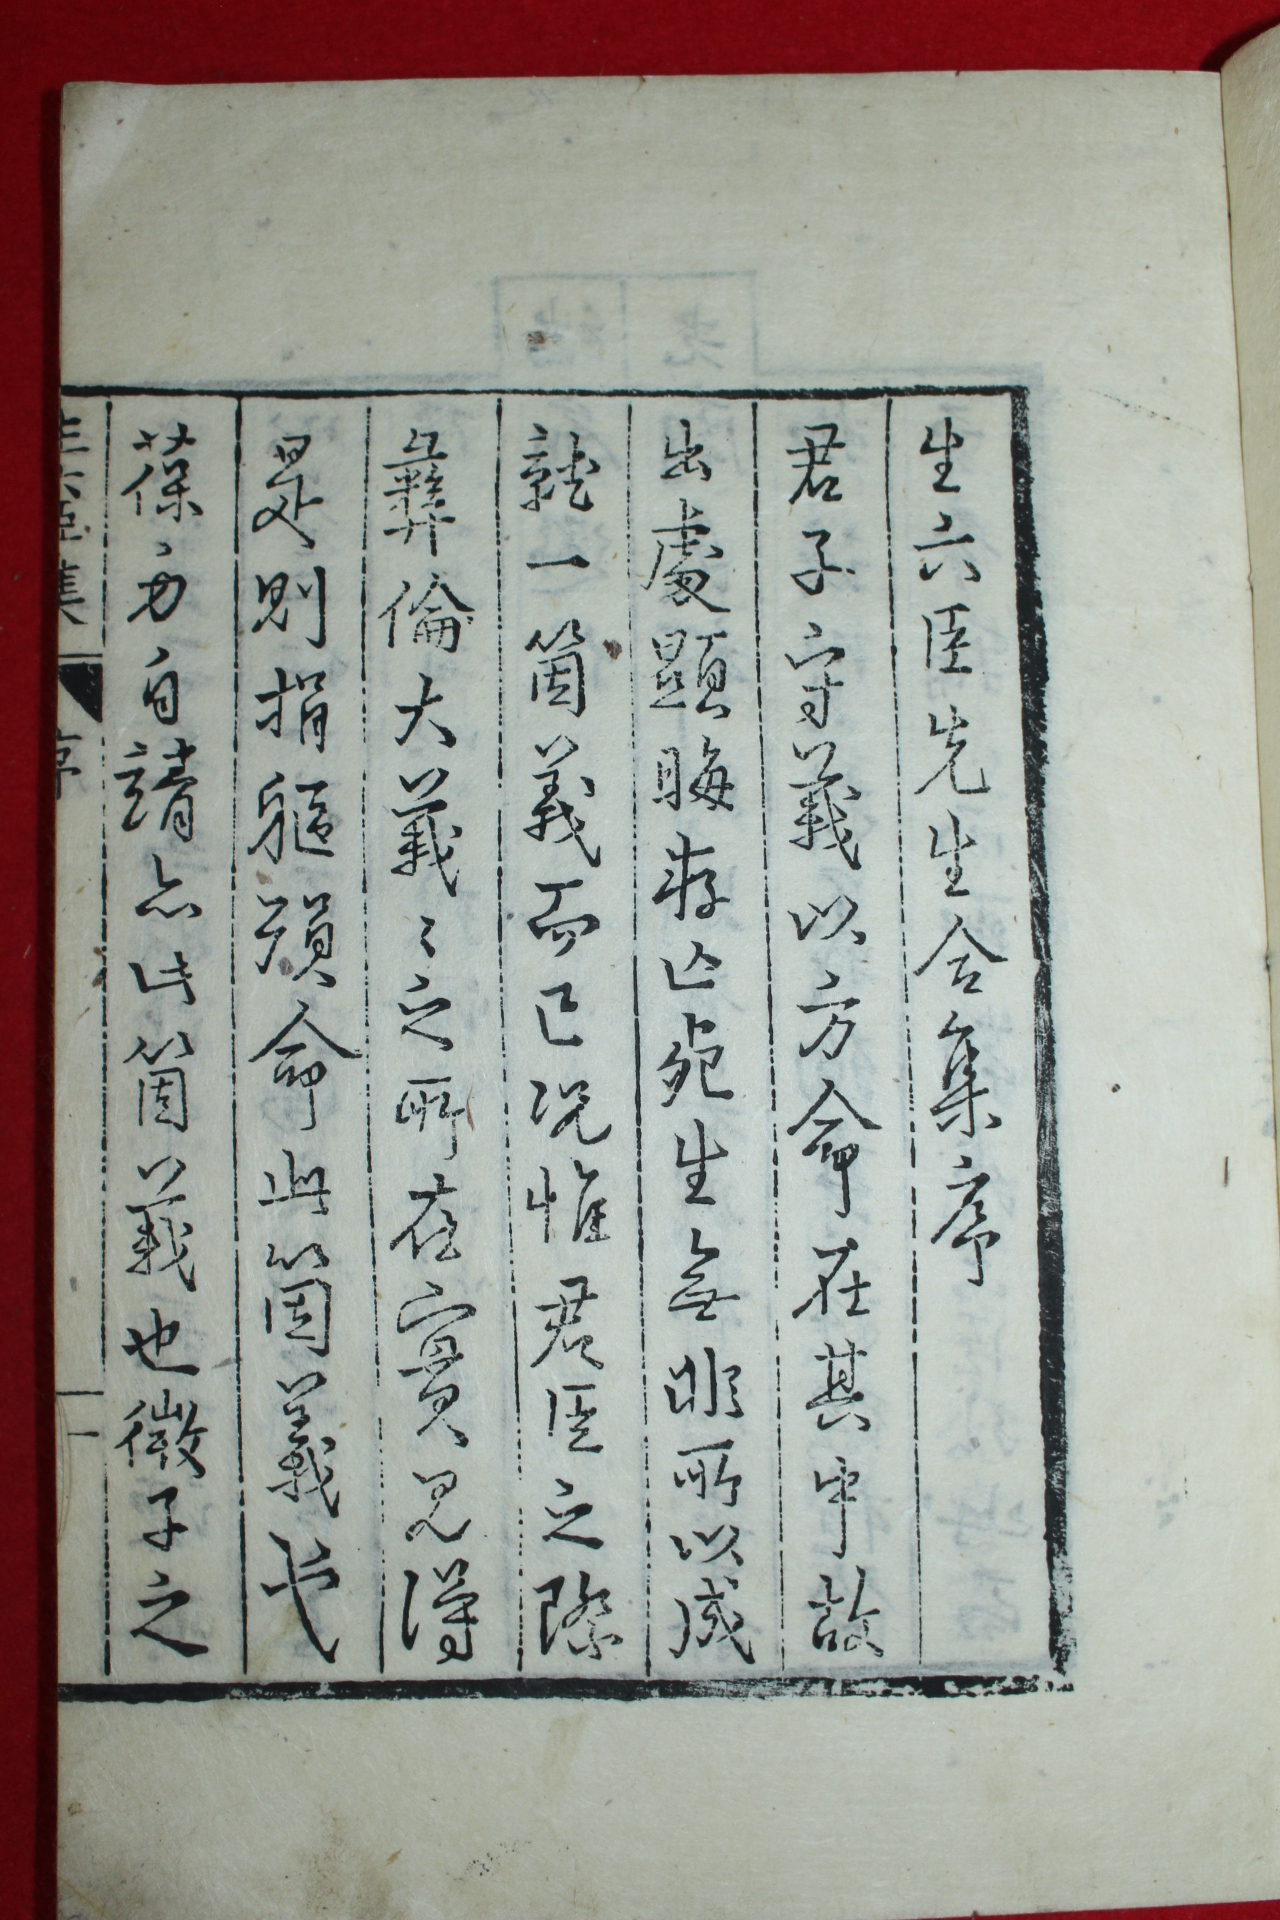 生六臣先生合集序
君子守義以方命在其中故
出處顯晦存亡死生無非所以成
就一箇義而已況惟君臣之際
彝倫大義〻之所在實見得
是處則捐軀殞命此箇義也
葆身自靖亦此箇義也微子之
生六臣集 序 一